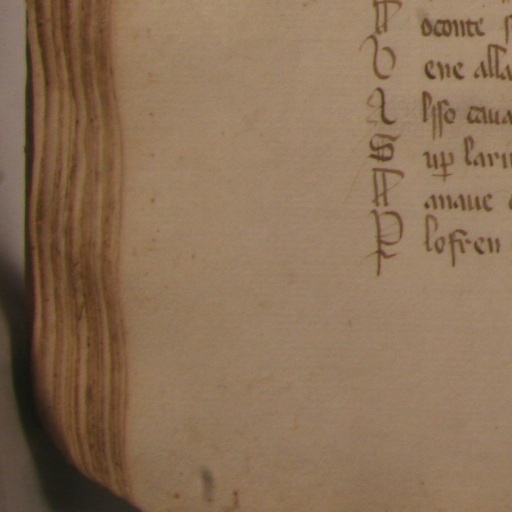 N oconte s
V ene alla
A lſſo caua
S up lari
N anaue
P lo fren